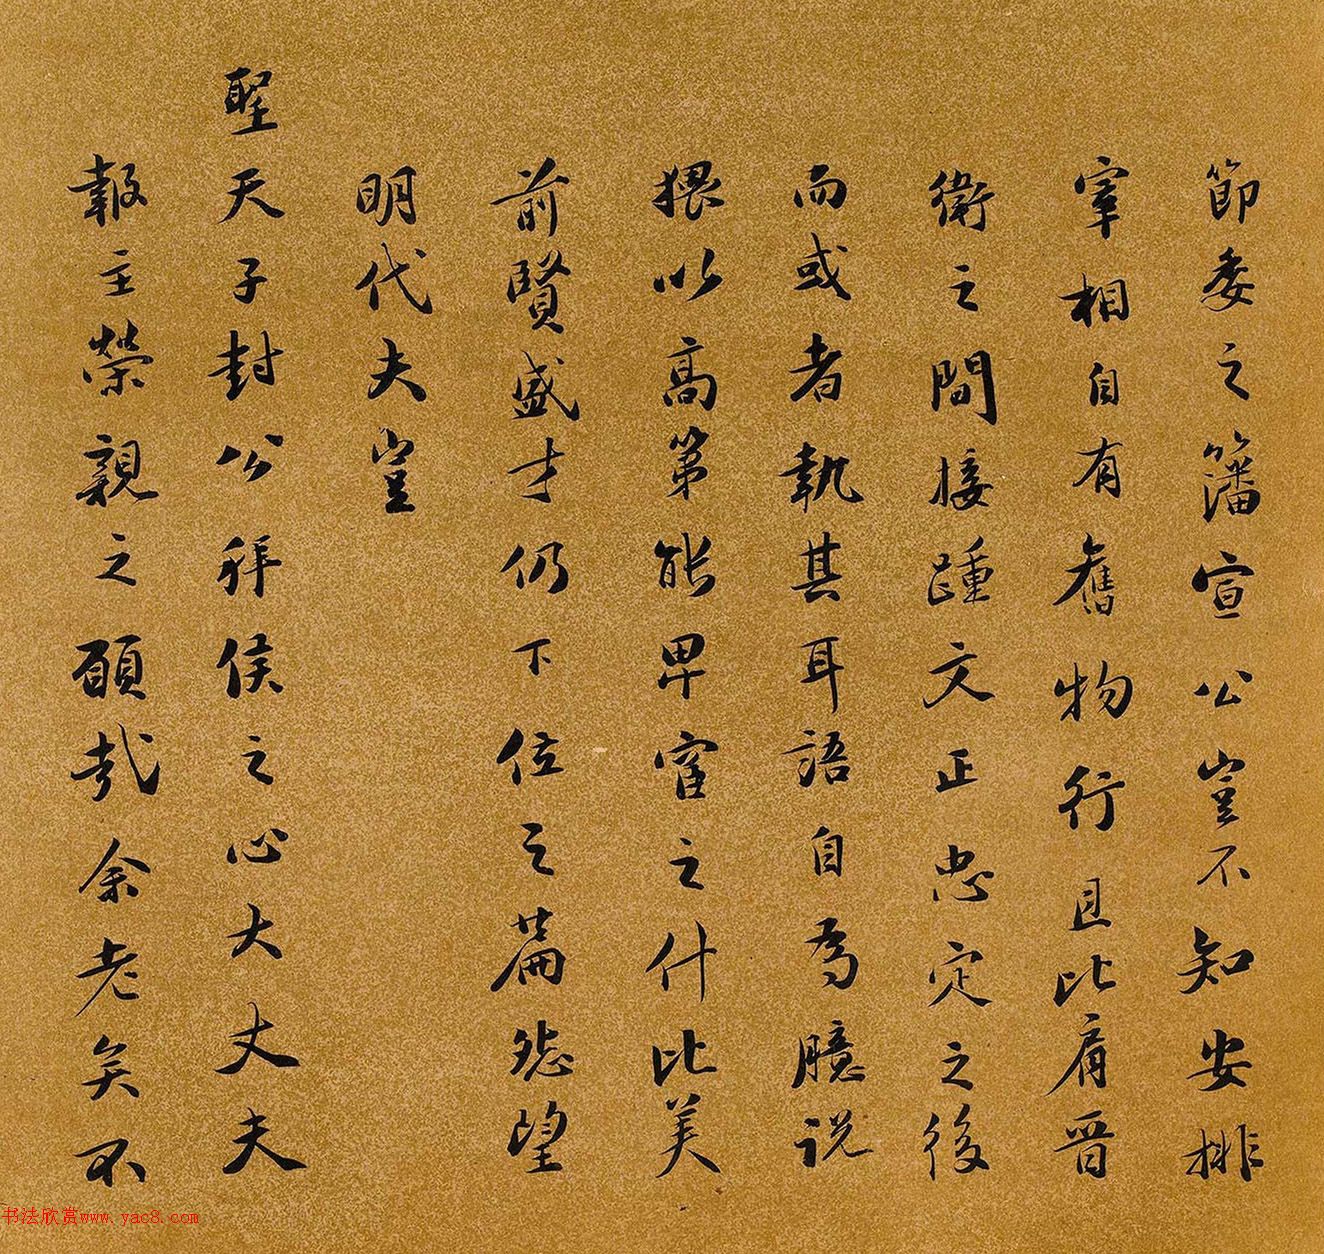 節委之籓宣公豈不知安排
宰相自有舊物行且比肩晋
衛之間接踵文正忠定之後
而或者執其耳語自為臆説
猥以高第能卑官之什比美
前賢盛才仍下位之篇怨望
明代夫豈
聖天子封公拜侯之心大丈夫
報主榮親之願哉余老矣不
书法欣赏www.yac8.com